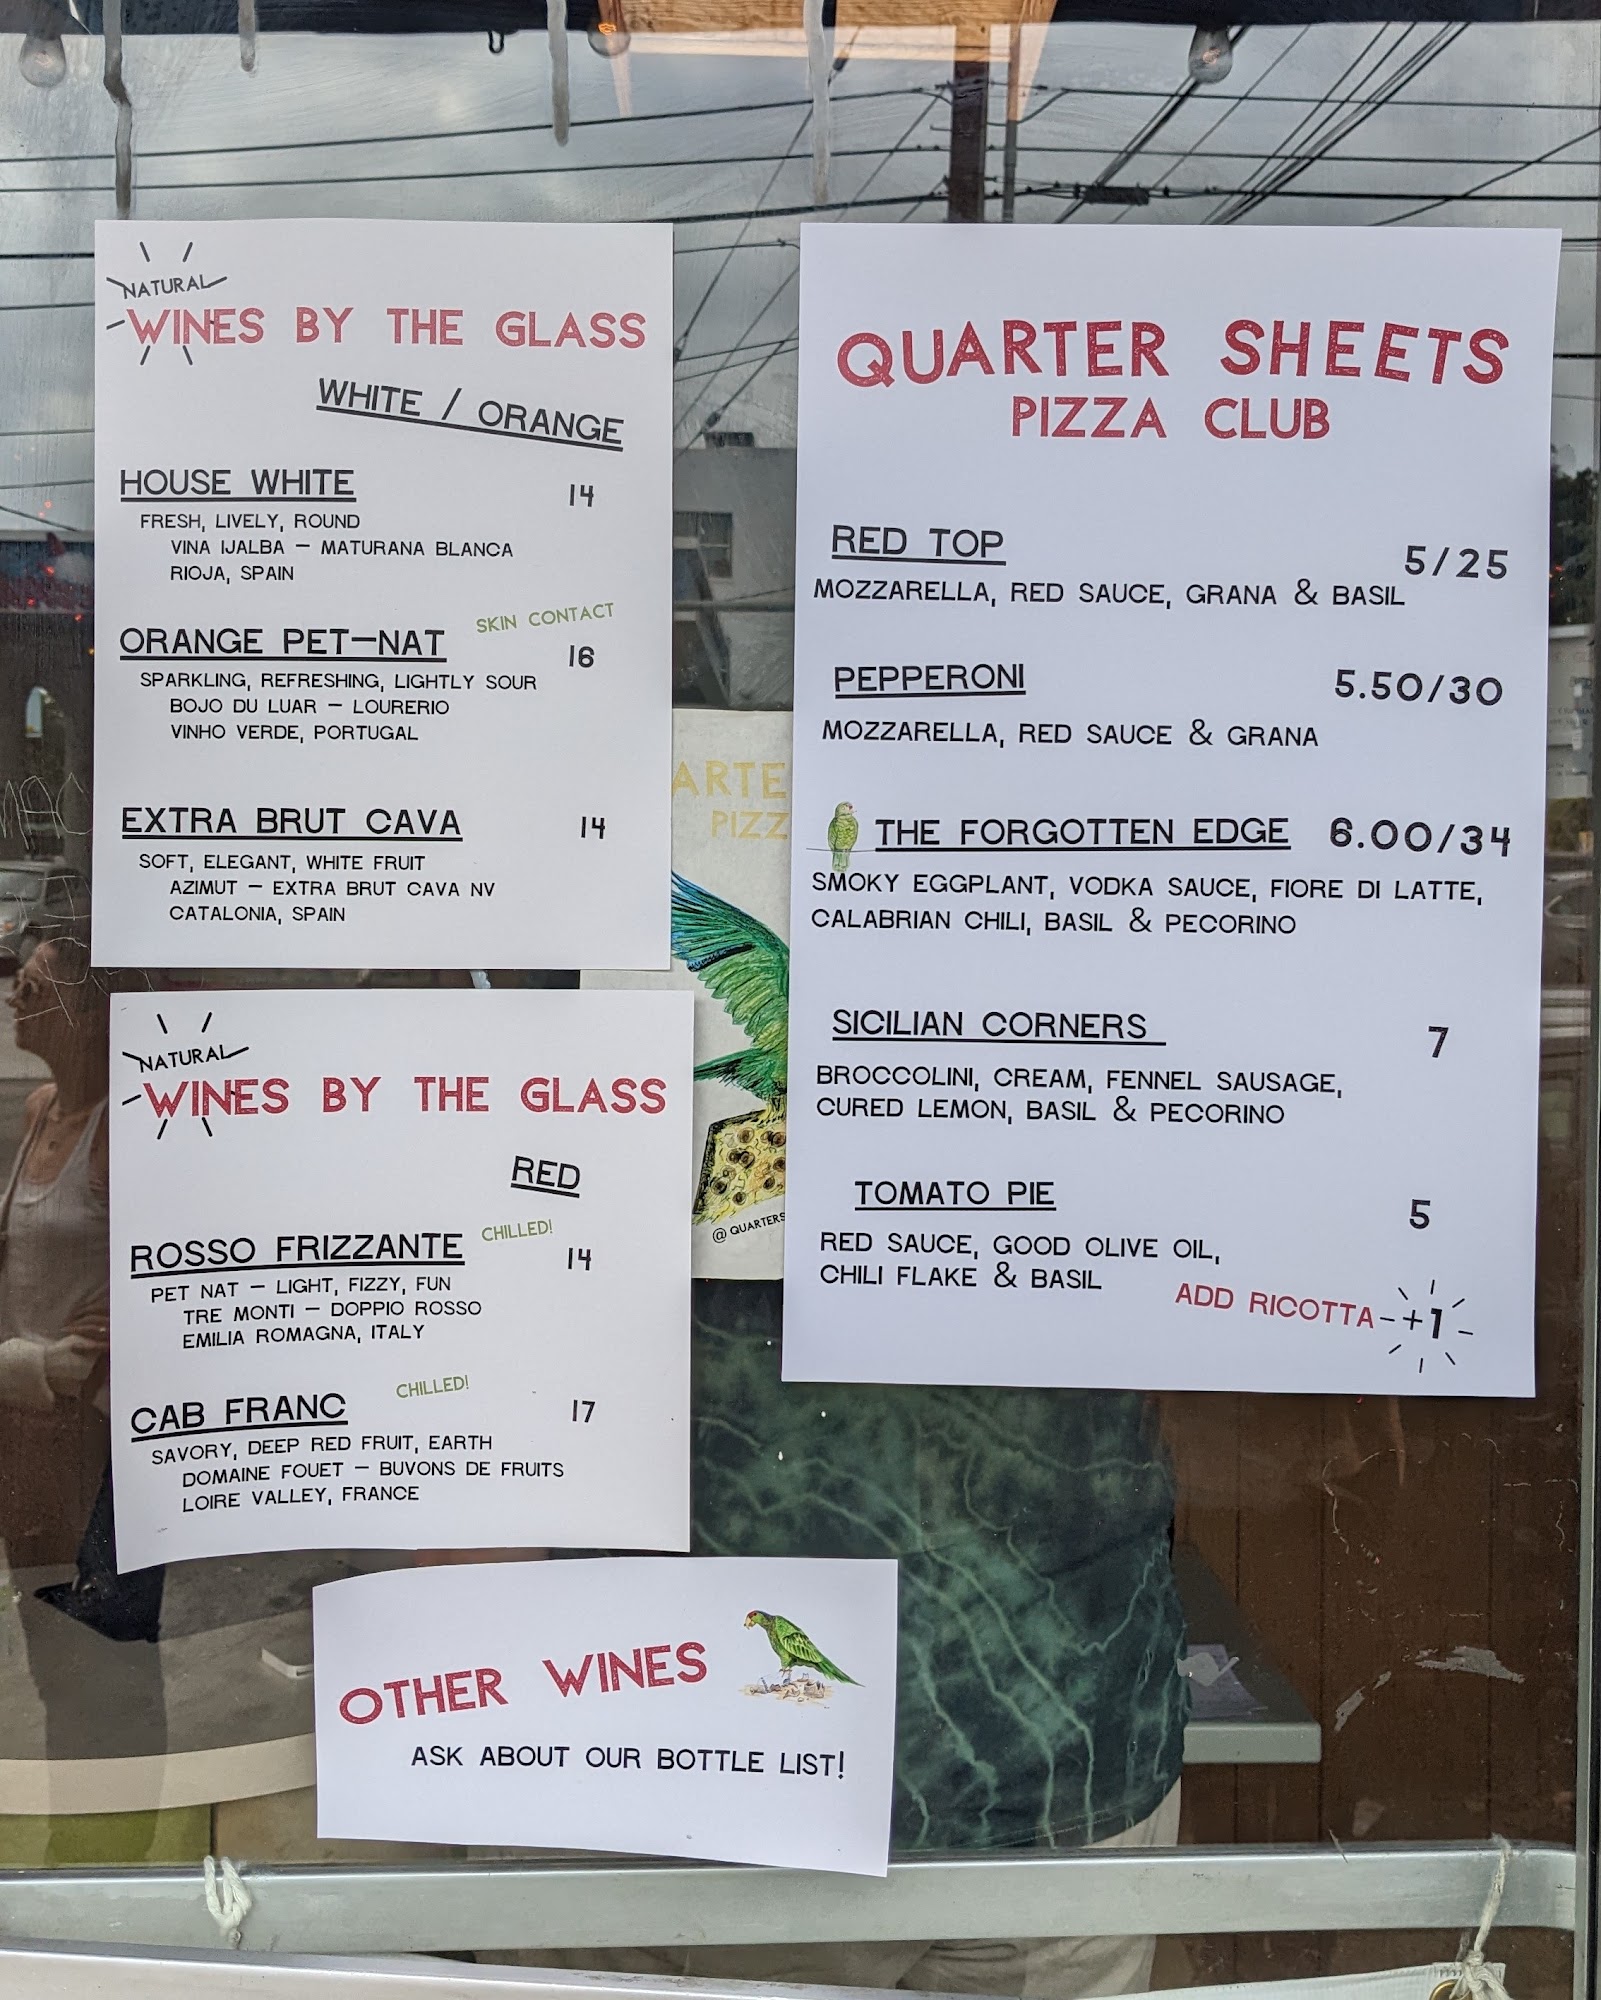 NATURAL
WINES BY THE GLASS
WHITE / ORANGE
HOUSE WHITE 14
FRESH, LIVELY, ROUND
VINA IJALBA – MATURANA BLANCA
RIOJA, SPAIN
SKIN CONTACT
ORANGE PET-NAT 16
SPARKLING, REFRESHING, LIGHTLY SOUR
BOJO DU LUAR – LOURERIO
VINHO VERDE, PORTUGAL
EXTRA BRUT CAVA 14
SOFT, ELEGANT, WHITE FRUIT
AZIMUT – EXTRA BRUT CAVA NV
CATALONIA, SPAIN
NATURAL
WINES BY THE GLASS
RED
CHILLED!
ROSSO FRIZZANTE 14
PET NAT – LIGHT, FIZZY, FUN
TRE MONTI – DOPPIO ROSSO
EMILIA ROMAGNA, ITALY
CHILLED!
CAB FRANC 17
SAVORY, DEEP RED FRUIT, EARTH
DOMAINE FOUET – BUVONS DE FRUITS
LOIRE VALLEY, FRANCE
OTHER WINES
ASK ABOUT OUR BOTTLE LIST!
ARTE
PIZZ
@QUARTERS
QUARTER SHEETS
PIZZA CLUB
RED TOP 5/25
MOZZARELLA, RED SAUCE, GRANA & BASIL
PEPPERONI 5.50/30
MOZZARELLA, RED SAUCE & GRANA
THE FORGOTTEN EDGE 6.00/34
SMOKY EGGPLANT, VODKA SAUCE, FIORE DI LATTE,
CALABRIAN CHILI, BASIL & PECORINO
SICILIAN CORNERS 7
BROCCOLINI, CREAM, FENNEL SAUSAGE,
CURED LEMON, BASIL & PECORINO
TOMATO PIE 5
RED SAUCE, GOOD OLIVE OIL,
CHILI FLAKE & BASIL
ADD RICOTTA +1